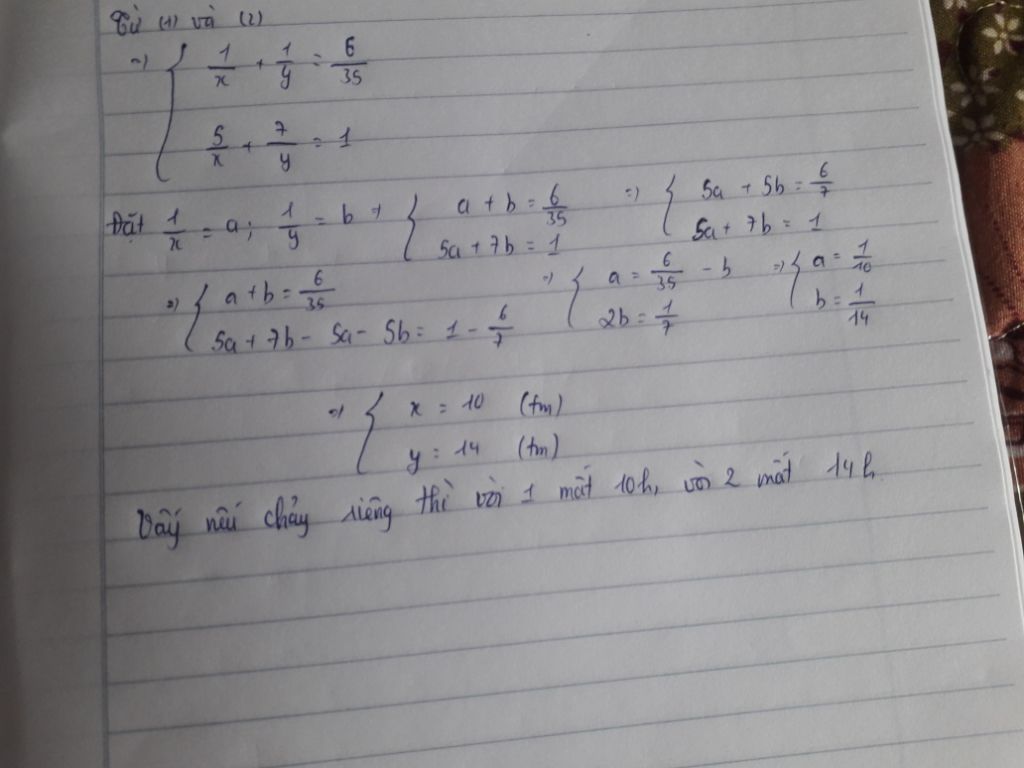 Từ (1) và (2)
=> { 1/x + 1/y = 6/35
5/x + 7/y = 1
Đặt 1/x = a; 1/y = b => { a + b = 6/35 => { 5a + 5b = 6/7
5a + 7b = 1 5a + 7b = 1
=> { a + b = 6/35 => { a = 6/35 - b => { a = 1/10
5a + 7b - 5a - 5b = 1 - 6/7 2b = 1/7 b = 1/14
=> { x = 10 (tm)
y = 14 (tm)
Vậy nếu chảy riêng thì vòi 1 mất 10h, vòi 2 mất 14h.